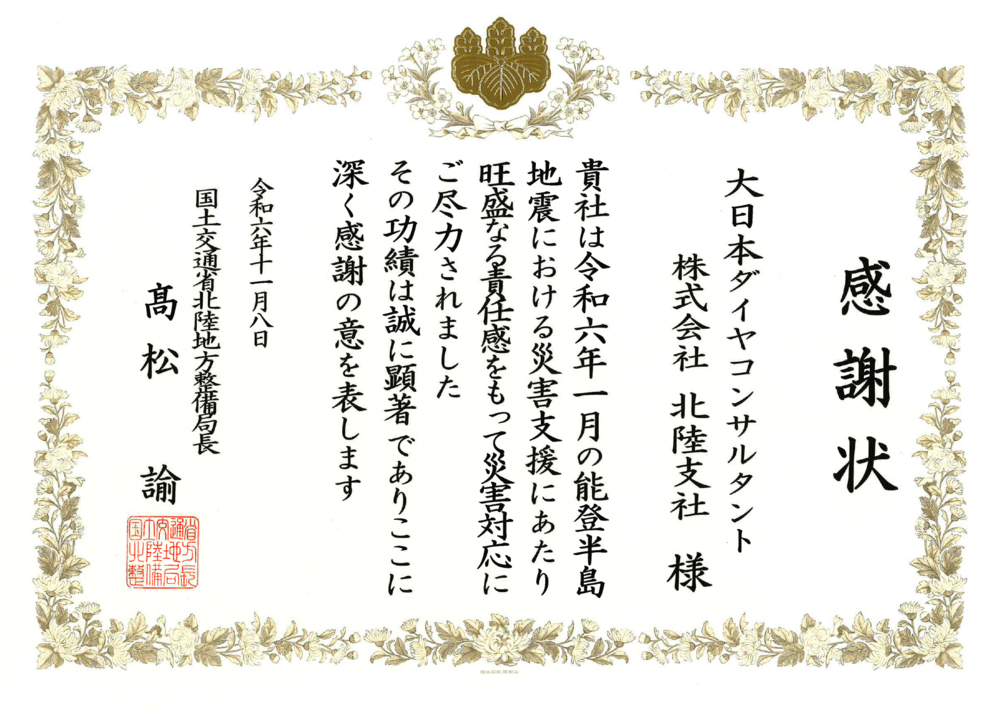 感謝状
大日本ダイヤコンサルタント
株式会社 北陸支社 様
貴社は令和六年一月の能登半島
地震における災害支援にあたり
旺盛なる責任感をもって災害対応に
ご尽力されました
その功績は誠に顕著でありここに
深く感謝の意を表します
令和六年十一月八日
国土交通省北陸地方整備局長
髙松 諭